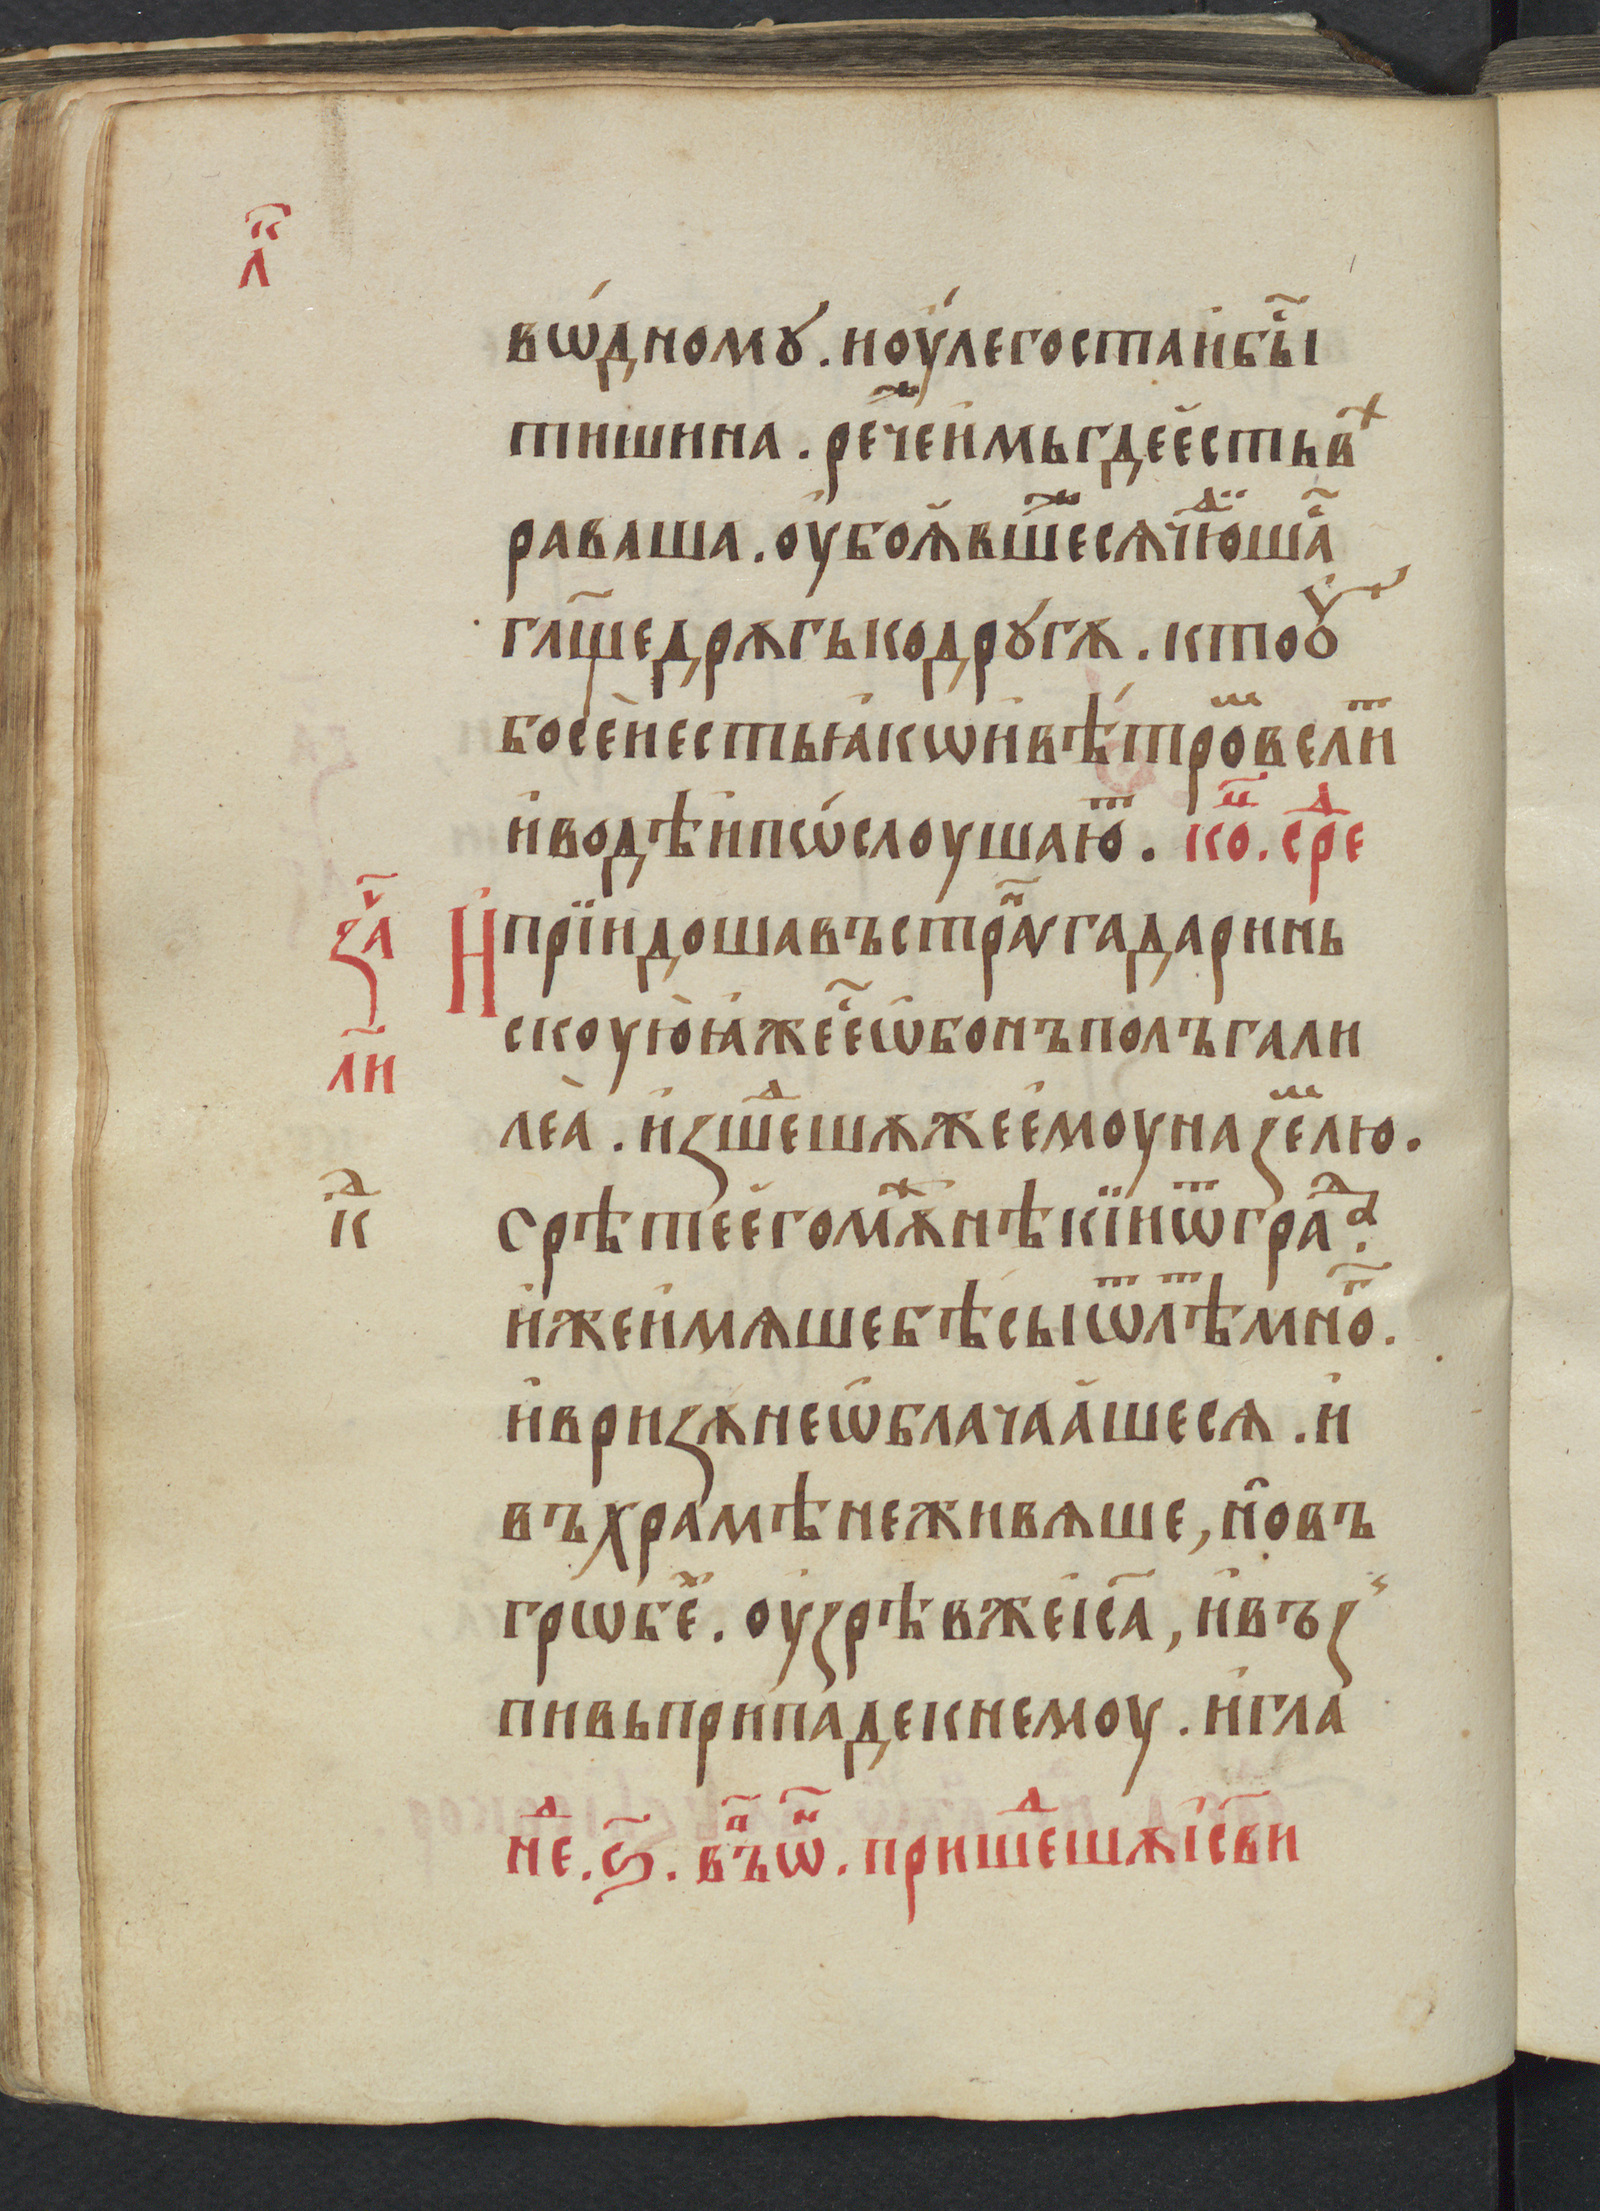 л҃к
вѡ́дномꙋ . ноу́легостаи҆бы҃
тишина . рече҆и҆мьгдее҆стьвⷯ
раваша . оу҆боꙗ҆вшⷤесѧчюⷣша҃
гл҃щедрѧгькодрꙋгѧ . ктоꙋ҆
босе́и҆естьꙗ҆кѡи҆вѣ́троⷨвелиⷮ
и҆водѣи҆пѡ́слоушаюⷮ . коⷩ҇ . среⷣ
за҃ч
Ипрїидошавъстранⷩ҇ꙋгадаринь
скоуюꙗ҆жеⷭ҇е҆ѡ҆бонъполъгали
л҃и
леа̀ . и҆зшеⷣшѫжее҆моуназеⷨлю .
к҃д
срѣтее҆гомѫⷤнѣкїиѿграⷣа .
и҆жеи҆мѧшебѣсыѿлѣⷮмноⷢ҇ .
и҆вризѫнеѡ҆блачаа҆шесѧ . и҆
въхрамѣнеживѧше , но҆въ
грѡбеⷯ . оу҆зрѣвжеі҆са҃ , и҆въз
пивьпри́па́декнемоу . и҆гла
неⷣ . ѕ҃ . въⷩ҇ѿⷩ҇ . пришеⷣшѫі҆св҃и